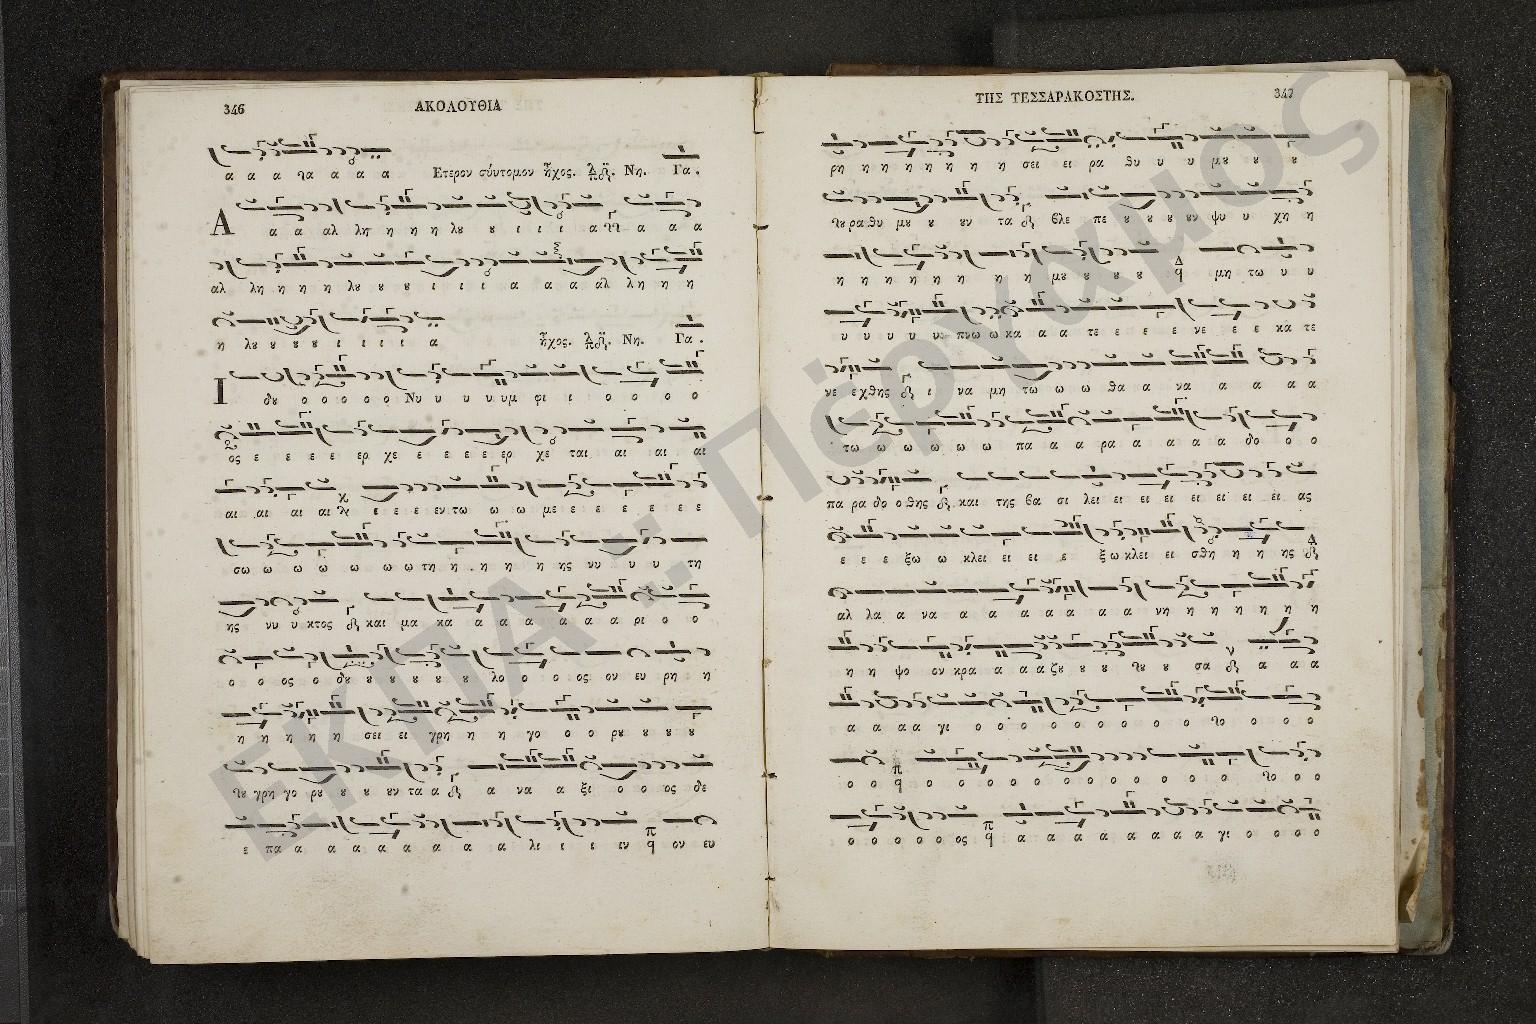 346
ΑΚΟΛΟΥΘΙΑ
α α α ϡα α α α Ετερον σύντομον ἦχος. πλ δ. Νη. Γα.
Α α α αλ λη η η η λȣ ȣ ι ι ι α α α α
αλ λη η η η λȣ ȣ ȣ ι ι ι α α α αλ λη η η
η λȣ ȣ ȣ ι ι ι ι α ἦχος. πλ δ. Νη. Γα.
Ι δȣ ο ο ο ο ο Νυ υ υ υ υμ φι ι ο ο ο ο
ος ε ε ε ε ερ χε ε ε ε ε ερ χε ται αι αι αι
αι αι αι αι ε ε ε εν τω ω ω με ε ε ε ε ε ε
σω ω ω ω ω ω ω τη η η η η η ης νυ υ υ τη
ης νυ υ κτος και μα κα α α α α α α ρι ο ο
ο ο ος ο δȣ ȣ ȣ ȣ ȣ ȣ λο ο ο ος ον ευ ρη η
η η η η η σει ει γρη η η γο ο ο ρȣ ȣ ȣ ȣ
γρη γο ρȣ ȣ ȣ ȣν τα α α να α ξι ο ο ος δε
ε πα α α α α α α α α λι ι ι ιν ον ευ
ΤΗΣ ΤΕΣΣΑΡΑΚΟΣΤΗΣ.
347
ρη η η η η η η η σει ει ρα θυ υ υ μȣ ȣ ȣ ȣ
ρα θυ μȣ ȣ ȣν τα βλε πε ȣ ȣ ȣ ȣ ȣν ψυ υ χη η
η η η η η η η η μȣ ȣ ȣ ȣ μη τω υ υ
υ υ υ υ υ πνω ω κα α α τε ε ε ε νε ε ε κα τε
νε εχθης ι να μη τω ω ω θα α να α α α α
τω ω ω ω ω ω πα α α ρα α α α α δο ο ο
πα ρα δο ο θης και της βα σι λει ει ει ει ει ει ει ει ας
ε ε ε ξω ω κλει ει ει ει ε ξω κλει ει σθη η η ης
αλ λα α να α α α α α α α νη η η η η η η
η η ψο ον κρα α α α ζȣ ȣ ȣ ȣ σα α α α
α α α α γι ο ο ο ο ο ο ο ο ο ο ο ο ο
ο ο ο ο ο ο ο ο ο ο ο ο ο ο ο ο
ο ο ο ο ο ος α α α α α α α α γι ο ο ο ο
ΕΚΠΑ :: Πέργαμος